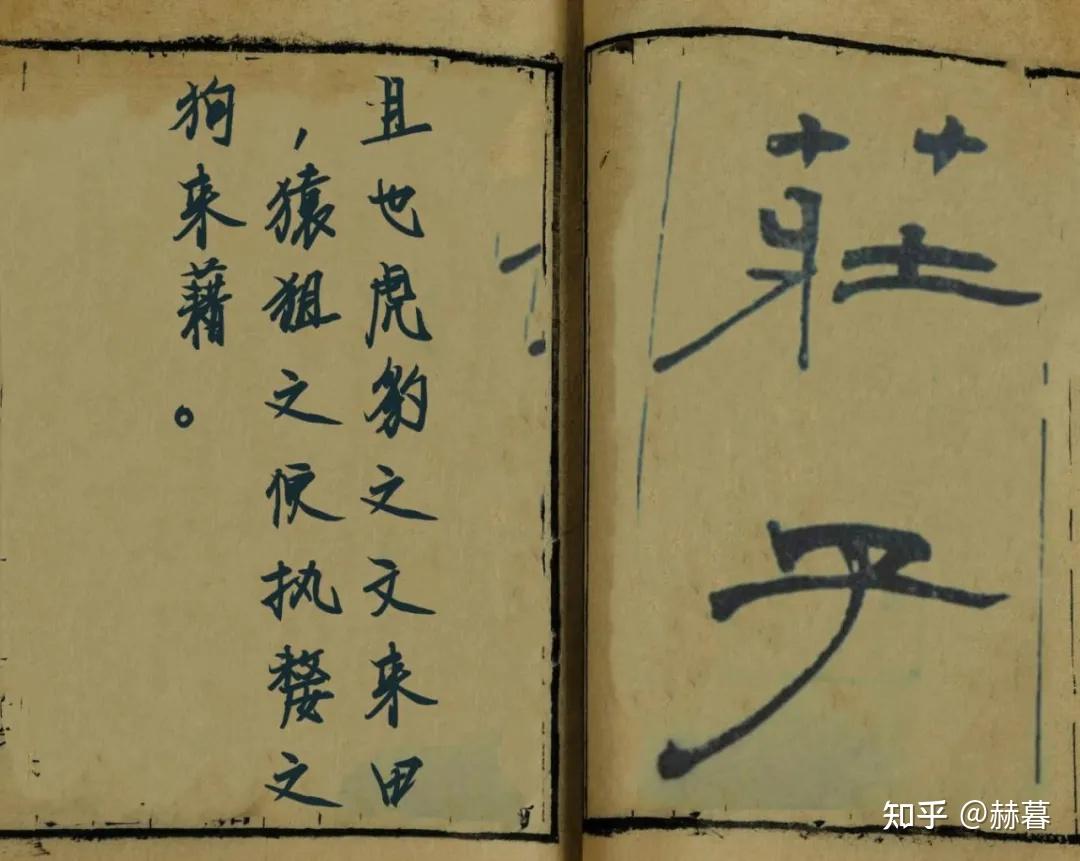 莊子
且也虎豹之文来田
，猿狙之便执斄之
狗来藉。
知乎 @赫暮